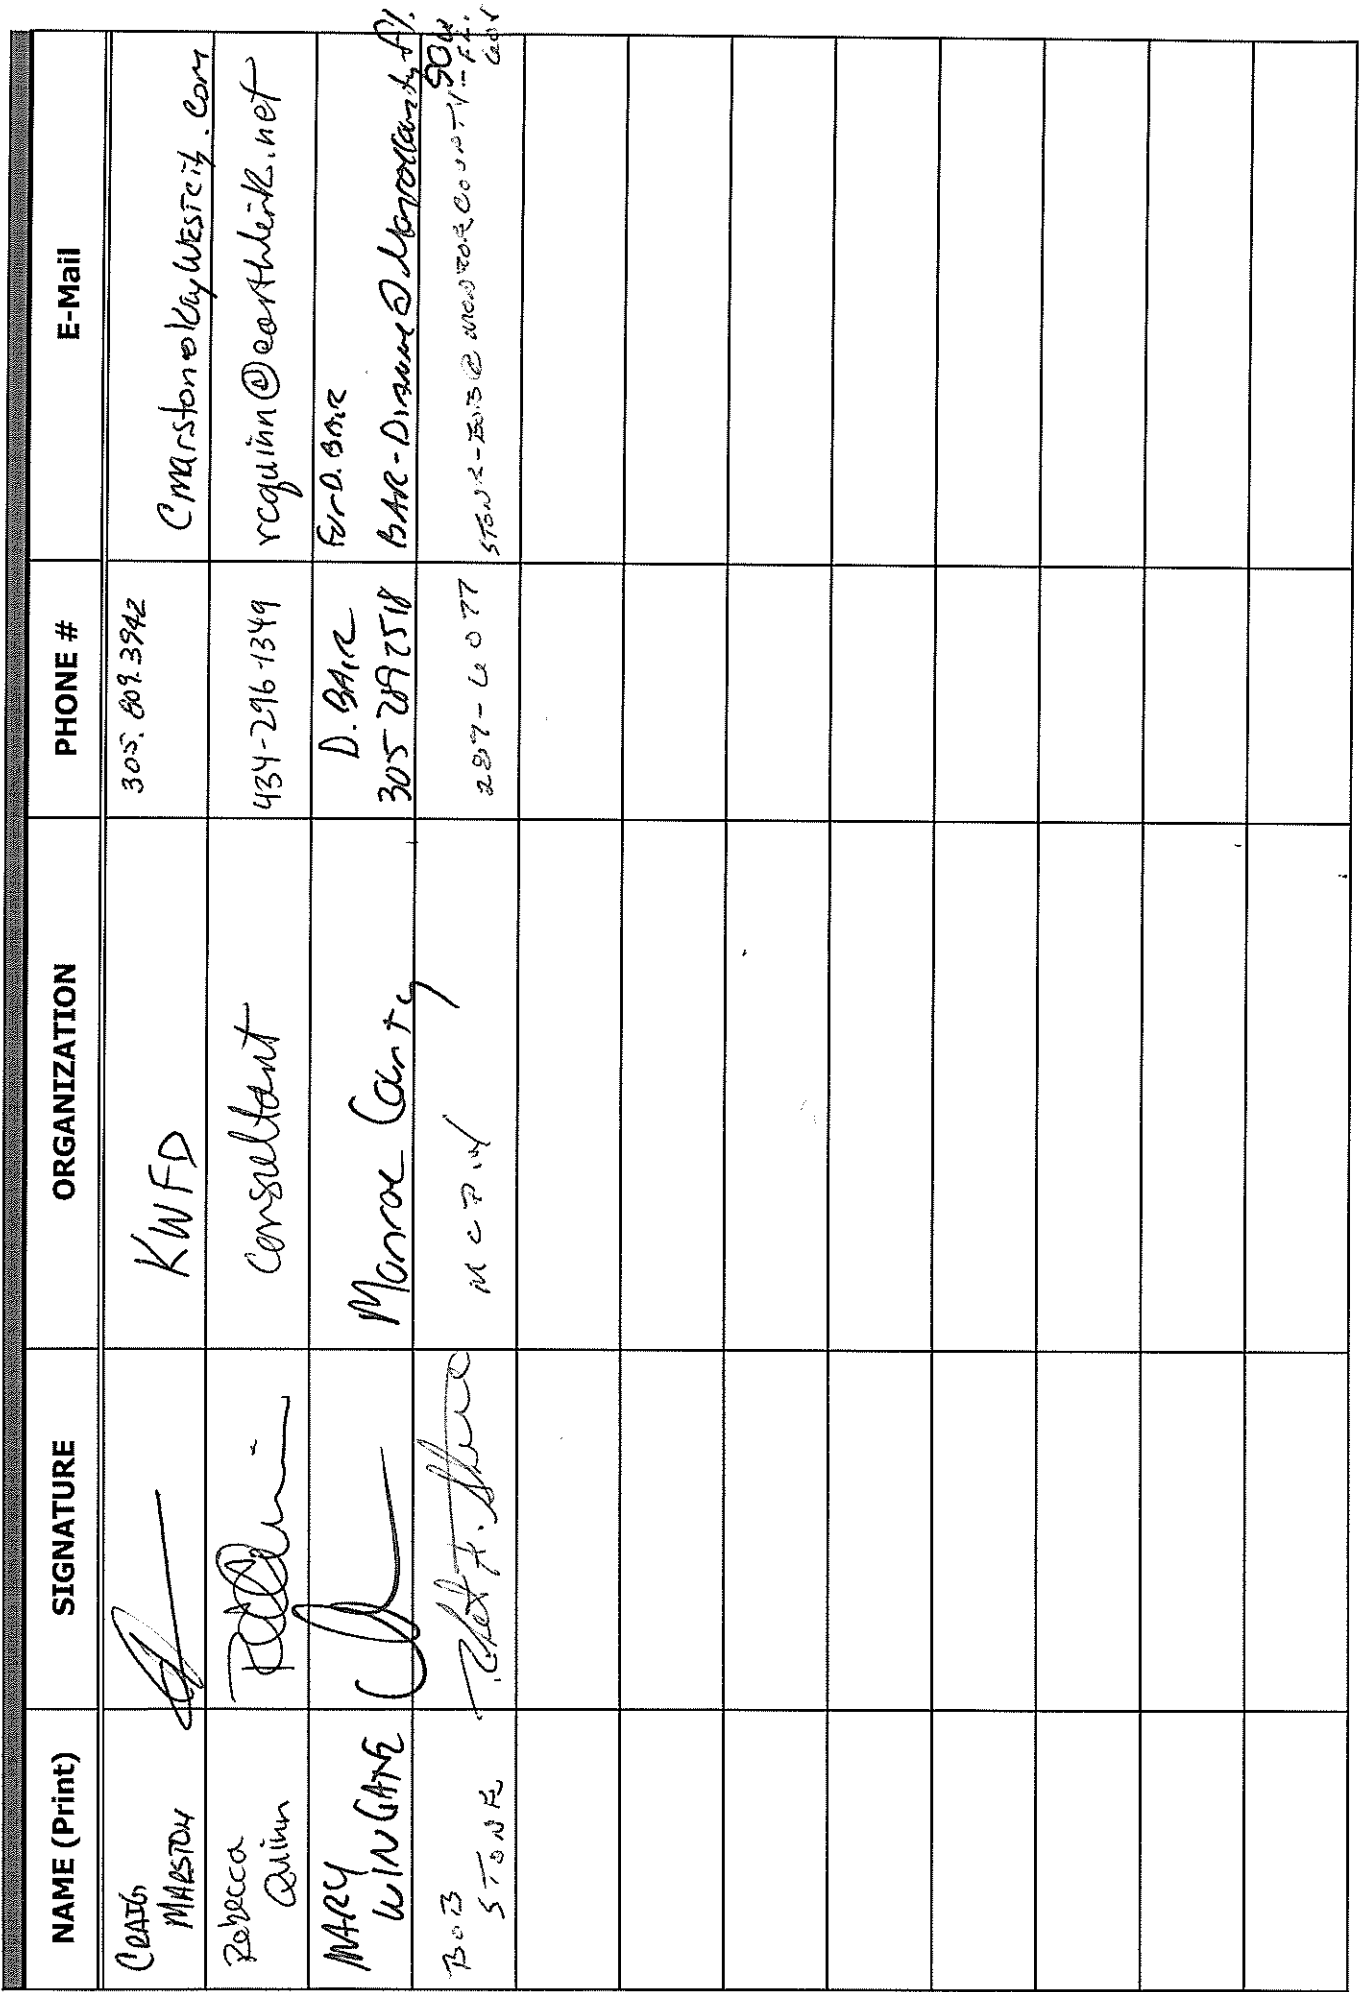 NAME (Print) SIGNATURE ORGANIZATION PHONE # E-Mail
CRAIG MARSTON KWFD 305.809.3942 Cmarston@KeyWestcity.com
Rebecca Quinn Consultant 434-296-1349 rcquinn@earthlink.net
MARY WINGATE Monroe County D. BAIR 305 289 2518 For D. BAIR BAIR-Dianne@MonroeCounty-Fl. gov
BOB STONE Robert A. Stone MCPW 289-6077 STONE-BOB@MONROECOUNTY-FL. GOV